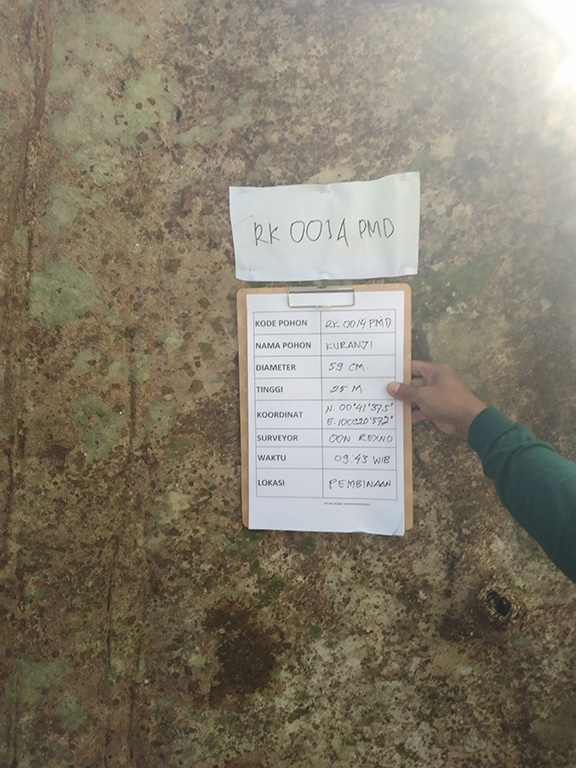 RK 0014 PMD
KODE POHON RK 0014 PMD
NAMA POHON KURANJI
DIAMETER 59 CM.
TINGGI 25 M.
KOORDINAT N. 00°41'37.5"
E. 100°20'57.2"
SURVEYOR OON REXNO
WAKTU 09:43 WIB
LOKASI PEMBINAAN